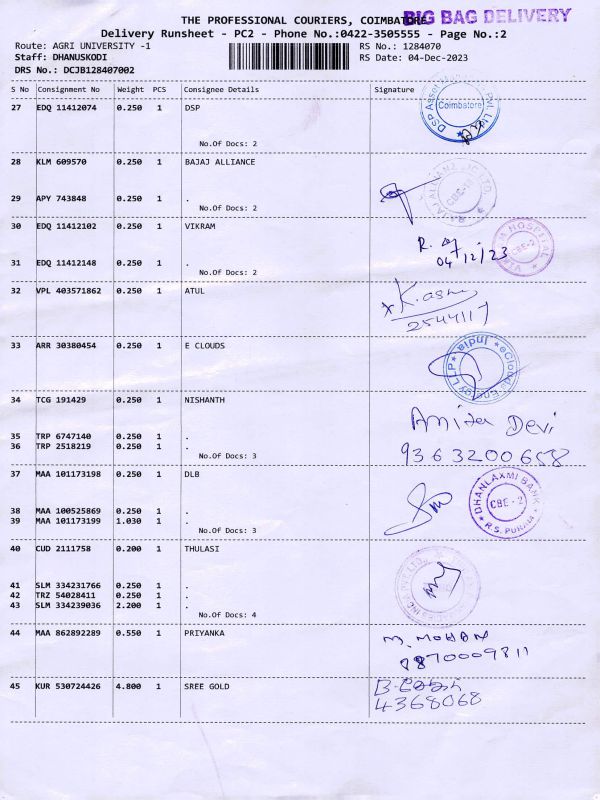 THE PROFESSIONAL COURIERS, COIMBATORE
BIG BAG DELIVERY
Delivery Runsheet - PC2 - Phone No.:0422-3505555 - Page No.:2
Route: AGRI UNIVERSITY -1
RS No.: 1284070
Staff: DHANUSKODI
RS Date: 04-Dec-2023
DRS No.: DCJB128407002
S No Consignment No Weight PCS Consignee Details Signature
27 EDQ 11412074 0.250 1 DSP
Coimbatore
No.Of Docs: 2
28 KLM 609570 0.250 1 BAJAJ ALLIANCE
29 APY 743848 0.250 1 .
No.Of Docs: 2
30 EDQ 11412102 0.250 1 VIKRAM
HOSPITAL
CBE-2
04/12/23
31 EDQ 11412148 0.250 1 .
No.Of Docs: 2
32 VPL 403571862 0.250 1 ATUL
2544117
33 ARR 30380454 0.250 1 E CLOUDS
34 TCG 191429 0.250 1 NISHANTH
Anitha Devi
35 TRP 6747140 0.250 1 .
36 TRP 2518219 0.250 1 .
9363200658
No.Of Docs: 3
37 MAA 101173198 0.250 1 DLB
DHANLAXMI BANK
CBE-2
R.S. PURAM
38 MAA 100525869 0.250 1 .
39 MAA 101173199 1.030 1 .
No.Of Docs: 3
40 CUD 2111758 0.200 1 THULASI
41 SLM 334231766 0.250 1 .
42 TRZ 54028411 0.250 1 .
43 SLM 334239036 2.200 1 .
No.Of Docs: 4
44 MAA 862892289 0.550 1 PRIYANKA
M. MOHAN
9870009811
45 KUR 530724426 4.800 1 SREE GOLD
4368068